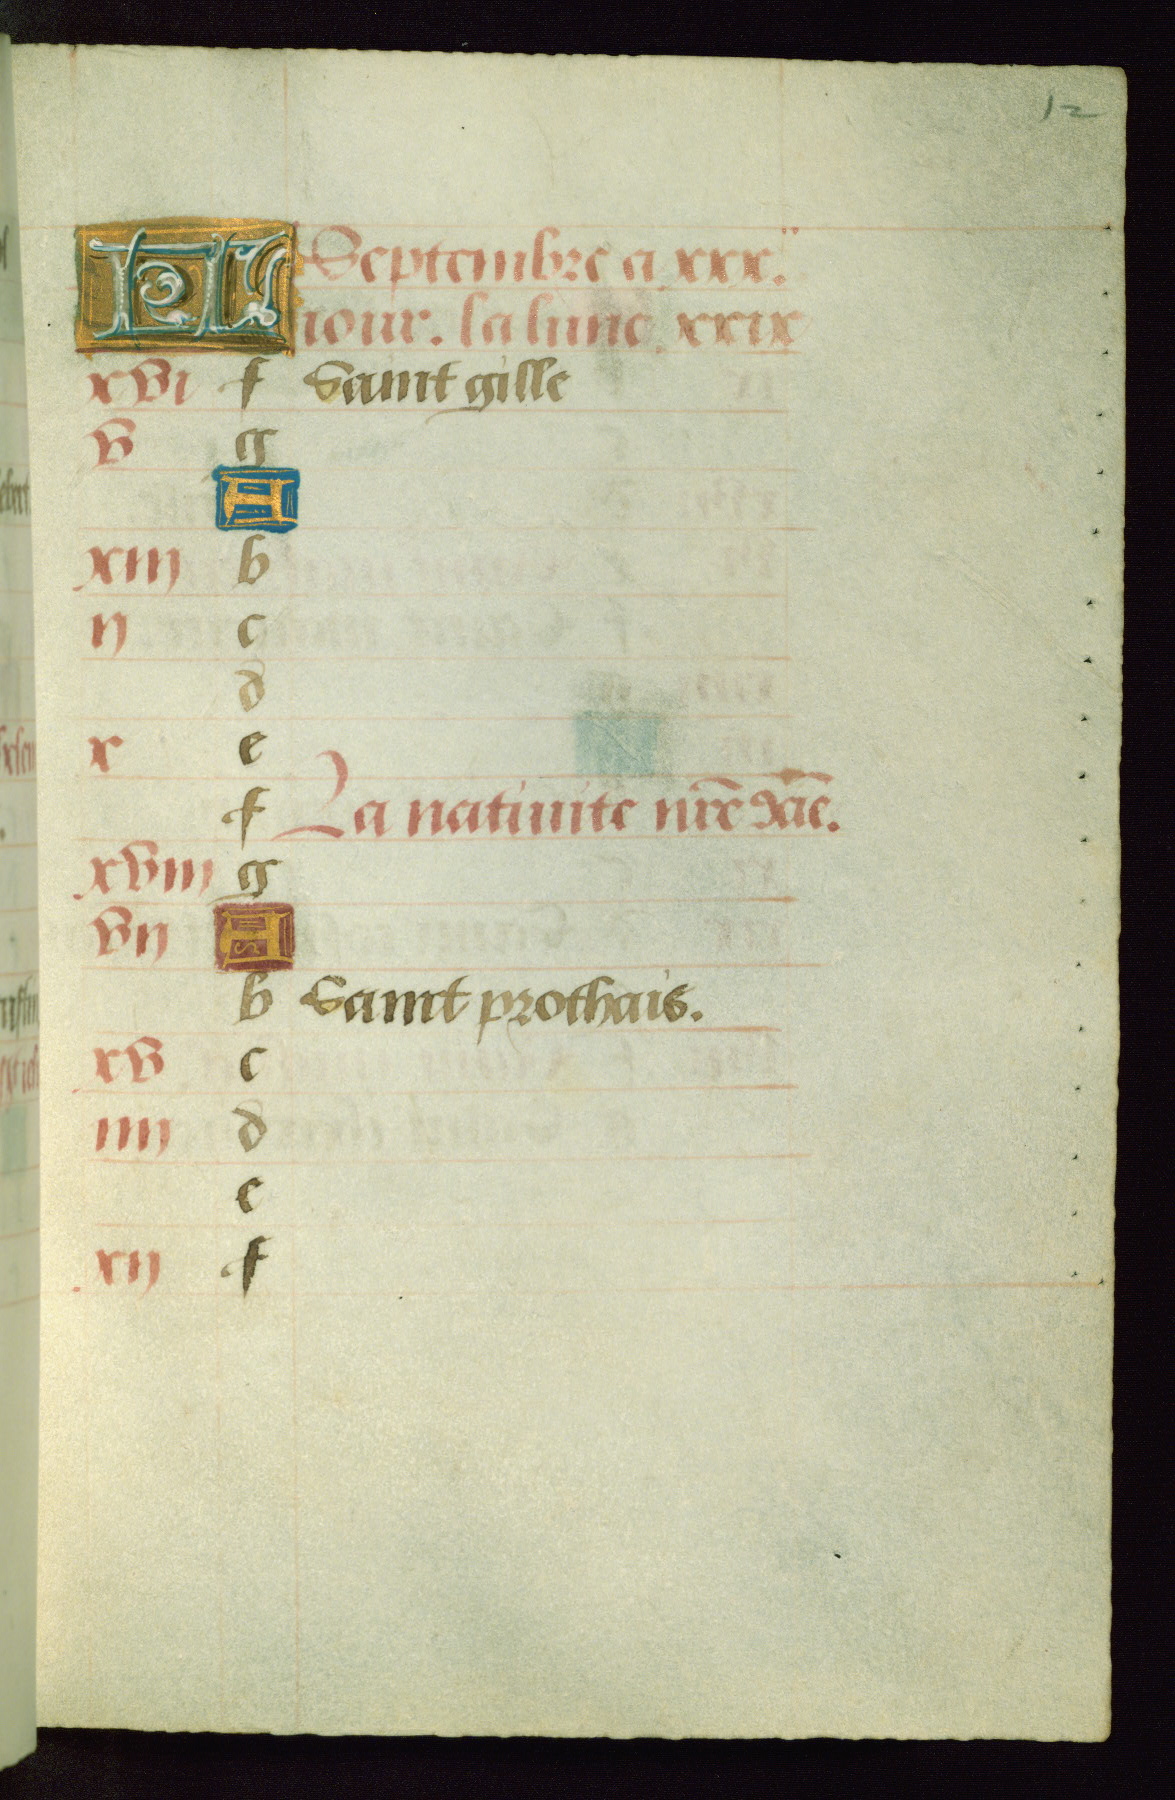 12
KL Septembre a xxx.
iour. la lune. xxix
xvi f Saint gille
v g
A
xiij b
ij c
d
x e
f La natiuite nr̄e dāe.
xviij g
vij A
b Saint prothais.
xv c
iiij d
e
xij f